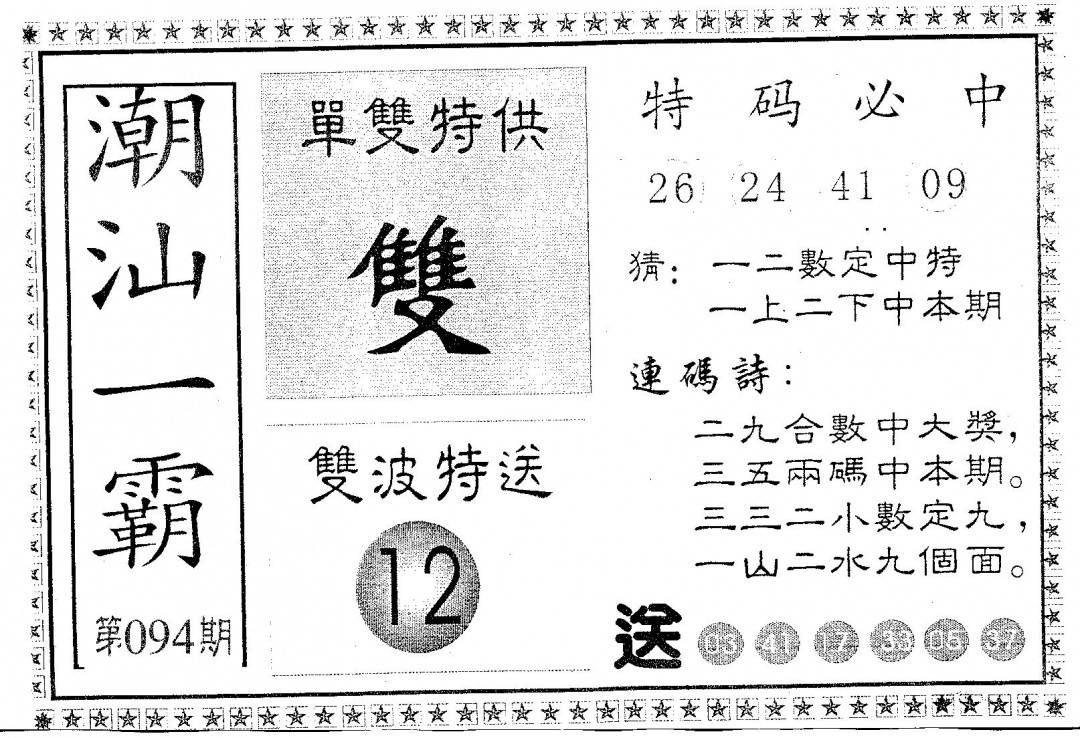 潮汕一霸
第094期
單雙特供
雙
雙波特送
12
特码必中
26 24 41 09
猜：一二數定中特
一上二下中本期
連碼詩：
二九合數中大獎，
三五兩碼中本期。
三三二小數定九，
一山二水九個面。
送 03 41 17 33 05 37